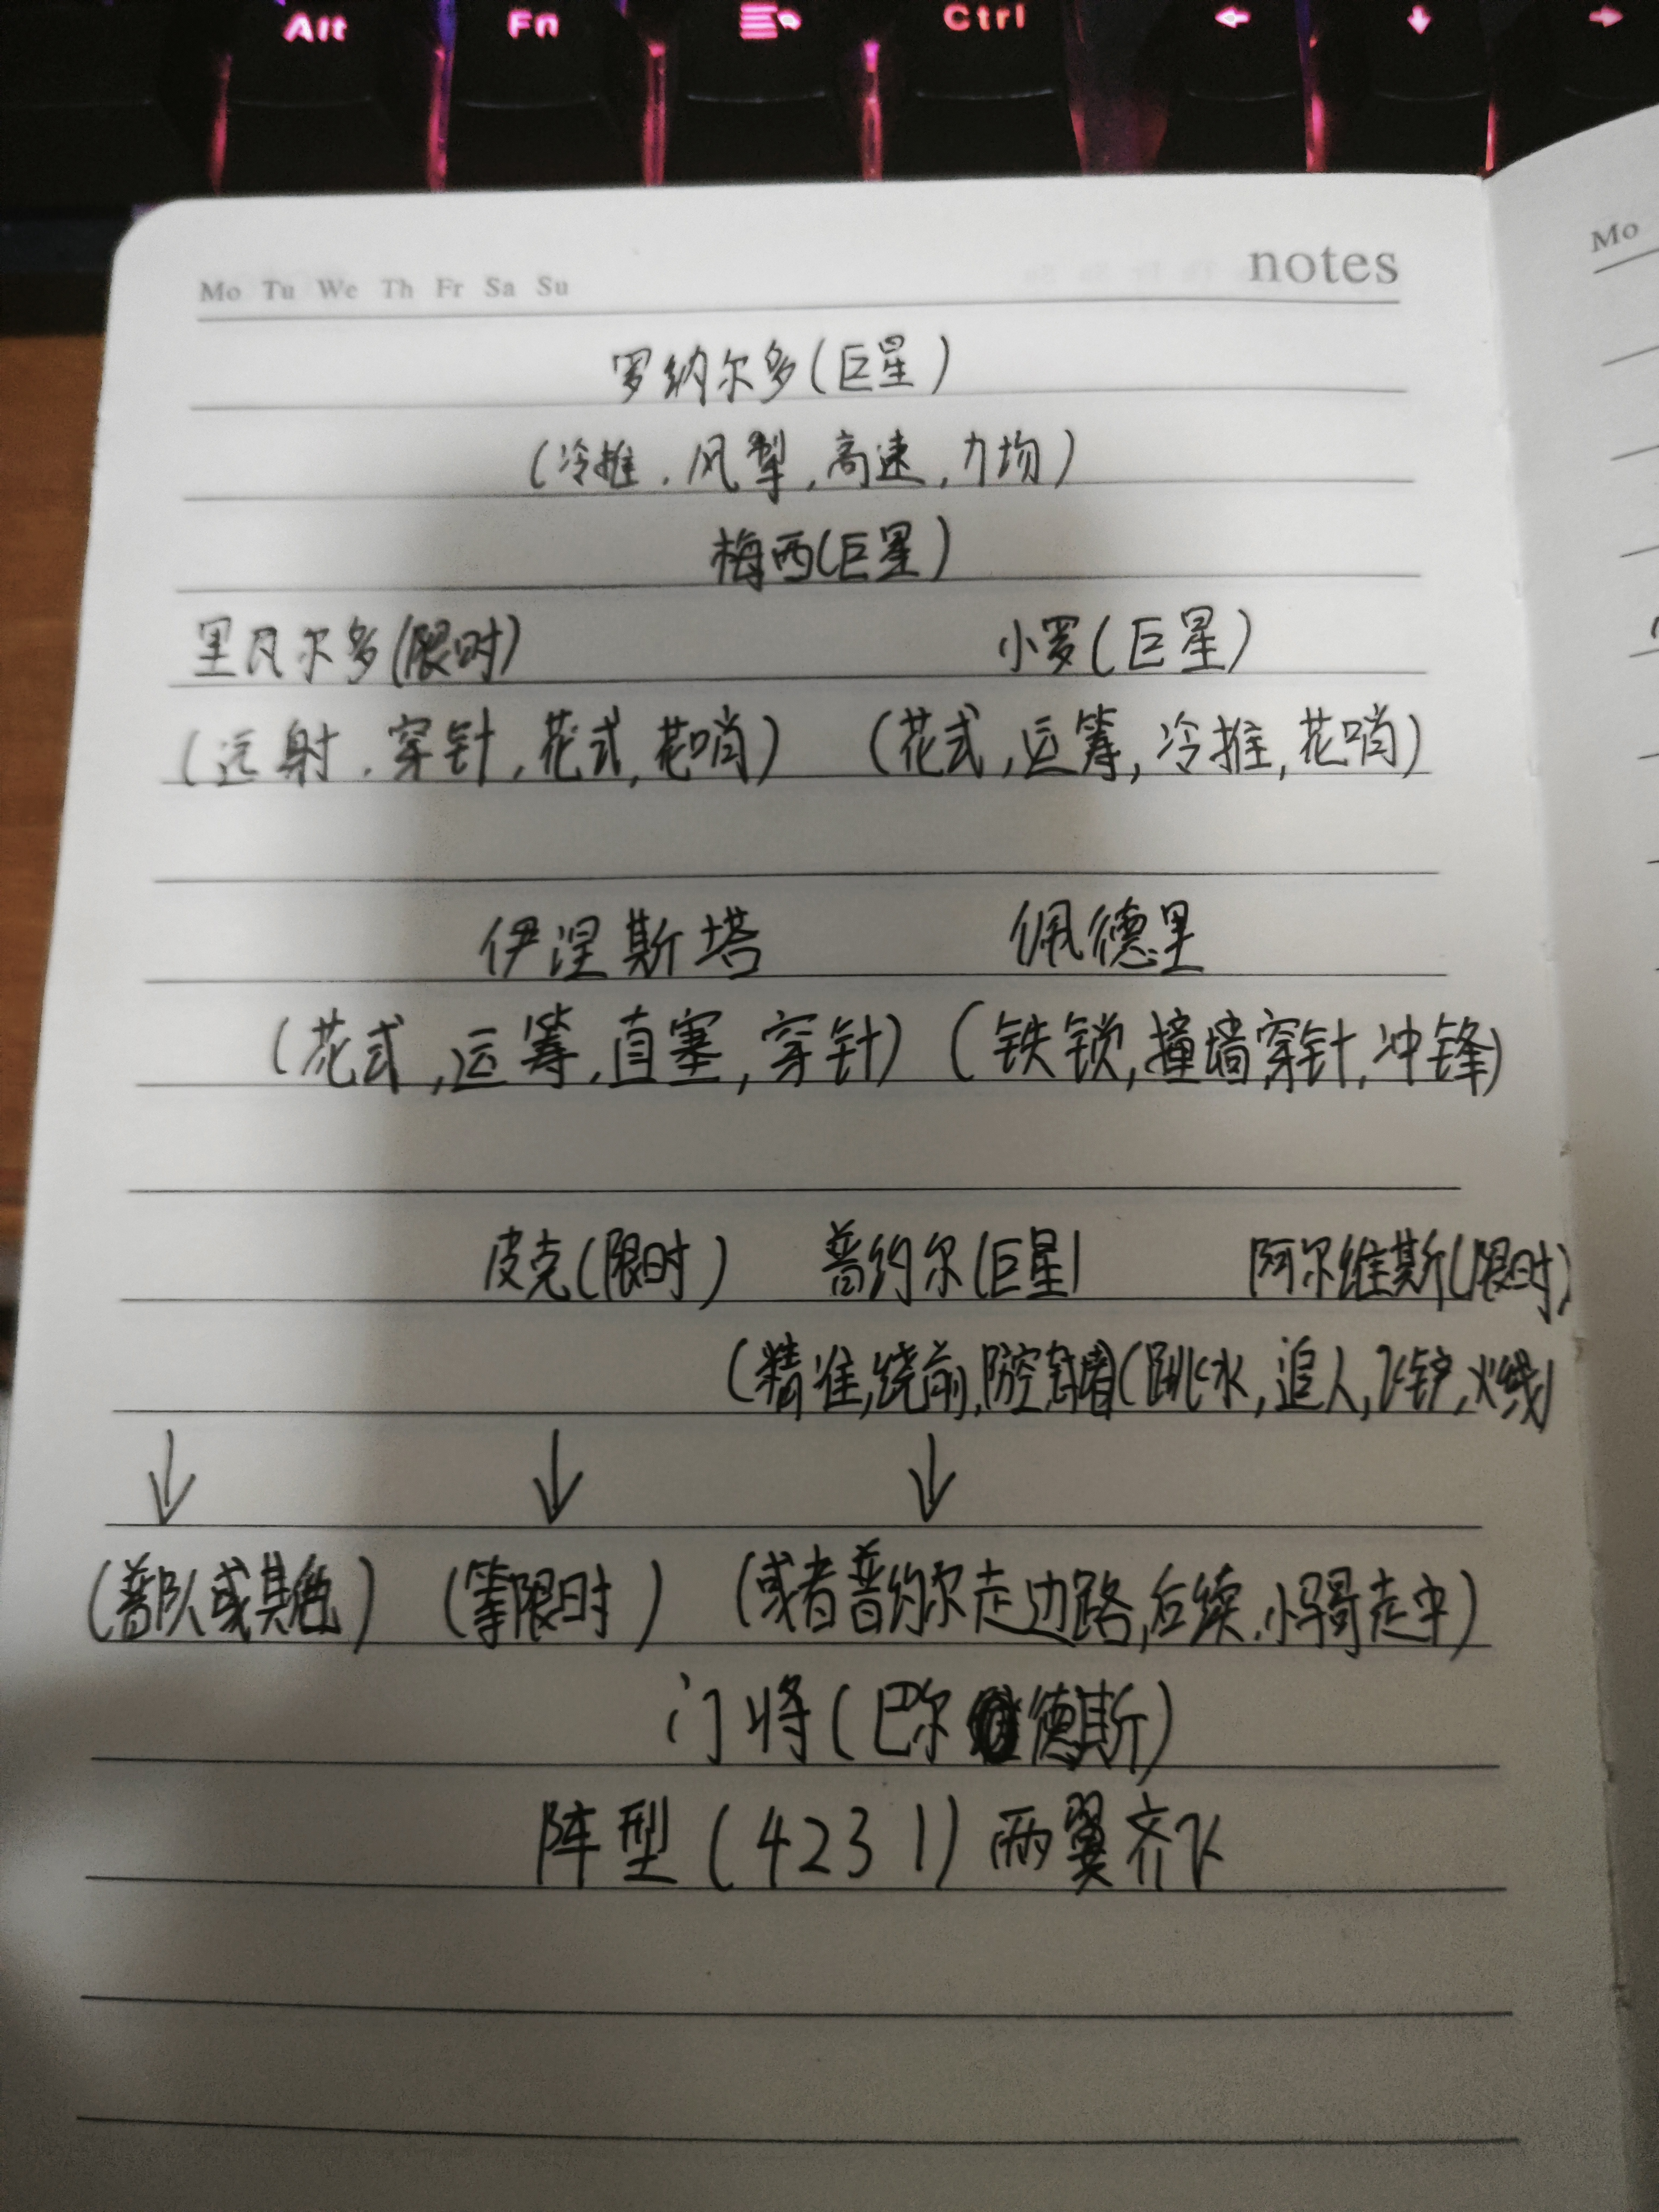 Alt Fn Ctrl
Mo Tu We Th Fr Sa Su notes
Mo
罗纳尔多(巨星)
(冷推,风犁,高速,力场)
梅西(巨星)
里凡尔多(限时) 小罗(巨星)
(远射,穿针,花式,花哨) (花式,运筹,冷推,花哨)
伊涅斯塔 佩德里
(花式,运筹,直塞,穿针) (铁锁,撞墙,穿针,冲锋)
皮克(限时) 普约尔(巨星) 阿尔维斯(限时)
(精准,绕前,防空, (跳水,追人,飞铲,火线)
↓ ↓ ↓
(普队或其他) (等限时) (或者普约尔走边路,后续,小哥走中)
门将(巴尔德斯)
阵型(4231)两翼齐飞